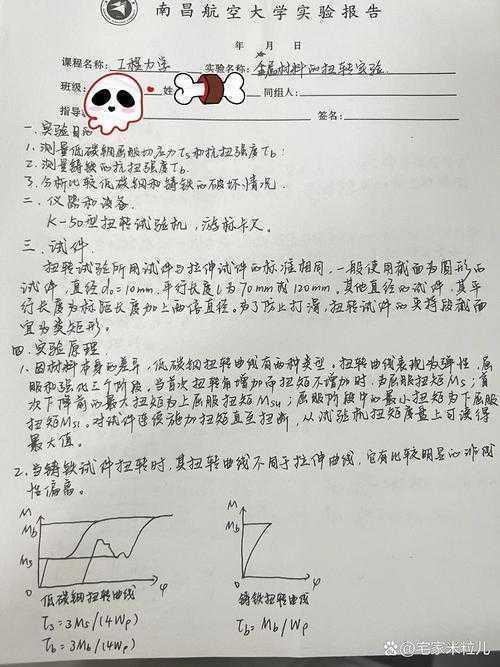 南昌航空大学实验报告
年 月 日
课程名称: 工程力学 实验名称: 金属材料的扭转实验
班级: 姓 同组人:
指导 签名:
一.实验目的
1.测量低碳钢屈服切应力τs和抗扭强度τb.
2.测量铸铁的抗扭强度τb.
3.分析比较低碳钢和铸铁的破坏情况.
二.仪器和设备.
K-50型扭转试验机,游标卡尺。
三.试件.
扭转试验所用试件与拉伸试件的标准相同,一般使用截面为圆形的
试件,直径d0=10mm,平行长度l为70mm或120mm。其他直径的试件,其平
行长度为标距长度加上两倍直径。为了防止打滑,扭转试件的夹持段截面
宜为类矩形。
四.实验原理.
1.因材料本身的差异,低碳钢扭转曲线有两种类型。扭转曲线表现为弹性,屈
服和强化三个阶段。当首次扭转角增加而扭矩不增加时,为屈服扭矩Ms;首
次下降前的最大扭矩为上屈服扭矩Msu;屈服阶段中的最小扭矩为下屈服
扭矩Msl.对试件连续施加扭矩直至扭断,从试验机扭矩度盘上可读得
最大值。
2.当铸铁试件扭转时,其扭转曲线不同于拉伸曲线,它有比较明显的非线
性偏离。
M
Mb
Ms
0 φ
M
Mb
0 φ
低碳钢扭转曲线 铸铁扭转曲线
τs=3Ms/(4Wp) τb=Mb/Wp
τb=3Mb/(4Wp)
@宅家米粒儿